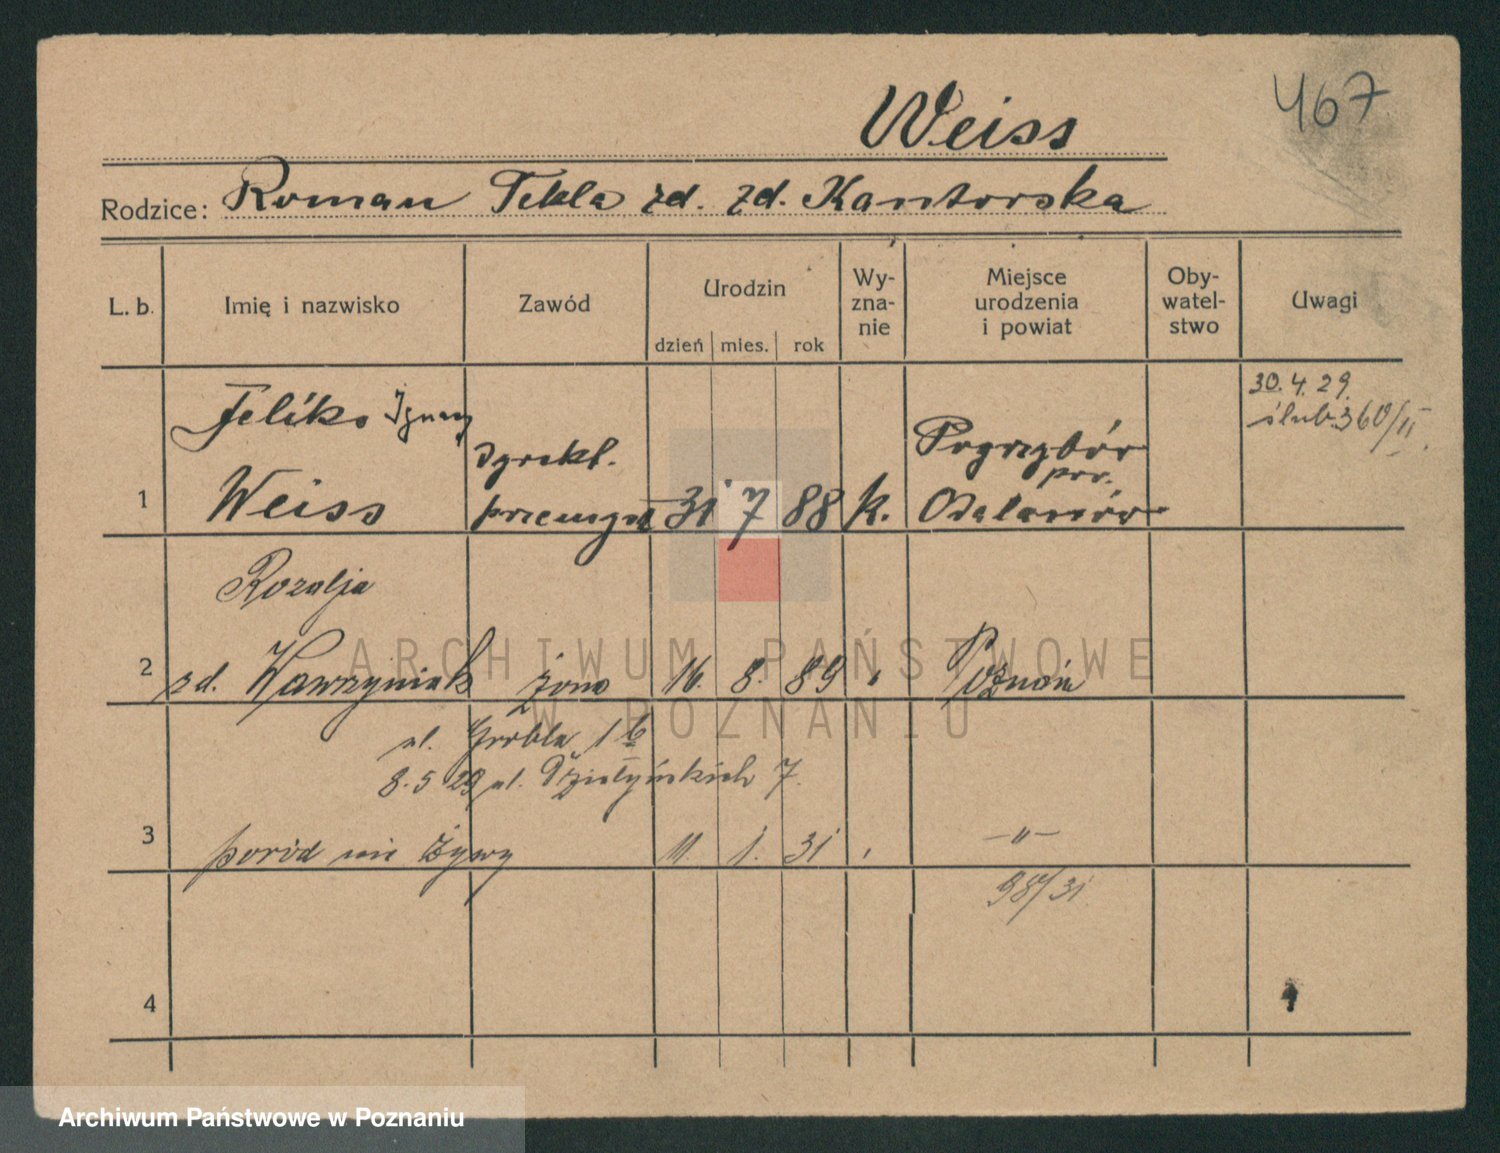 467
Weiss
Rodzice: Roman Tekla zd. zd. Kantorska
L. b.
Imię i nazwisko
Zawód
Urodzin
dzień mies. rok
Wy-
zna-
nie
Miejsce
urodzenia
i powiat
Oby-
watel-
stwo
Uwagi
30. 4. 29.
ślub. 360/II
Feliks Ignacy
dyrekt.
Pogrzybów
pow.
1 Weiss 31 7 88 k. Odolanów
Rozalja
2 zd. Wawrzyniak żona 16. 8. 89 " Poznań
ARCHIWUM PAŃSTWOWE
W POZNANIU
ul. Grobla 1 b
8.5 29 ul. Działyńskich 7.
3 poród nie żywy 11. 1. 31 " —"—
98/31
4
Archiwum Państwowe w Poznaniu